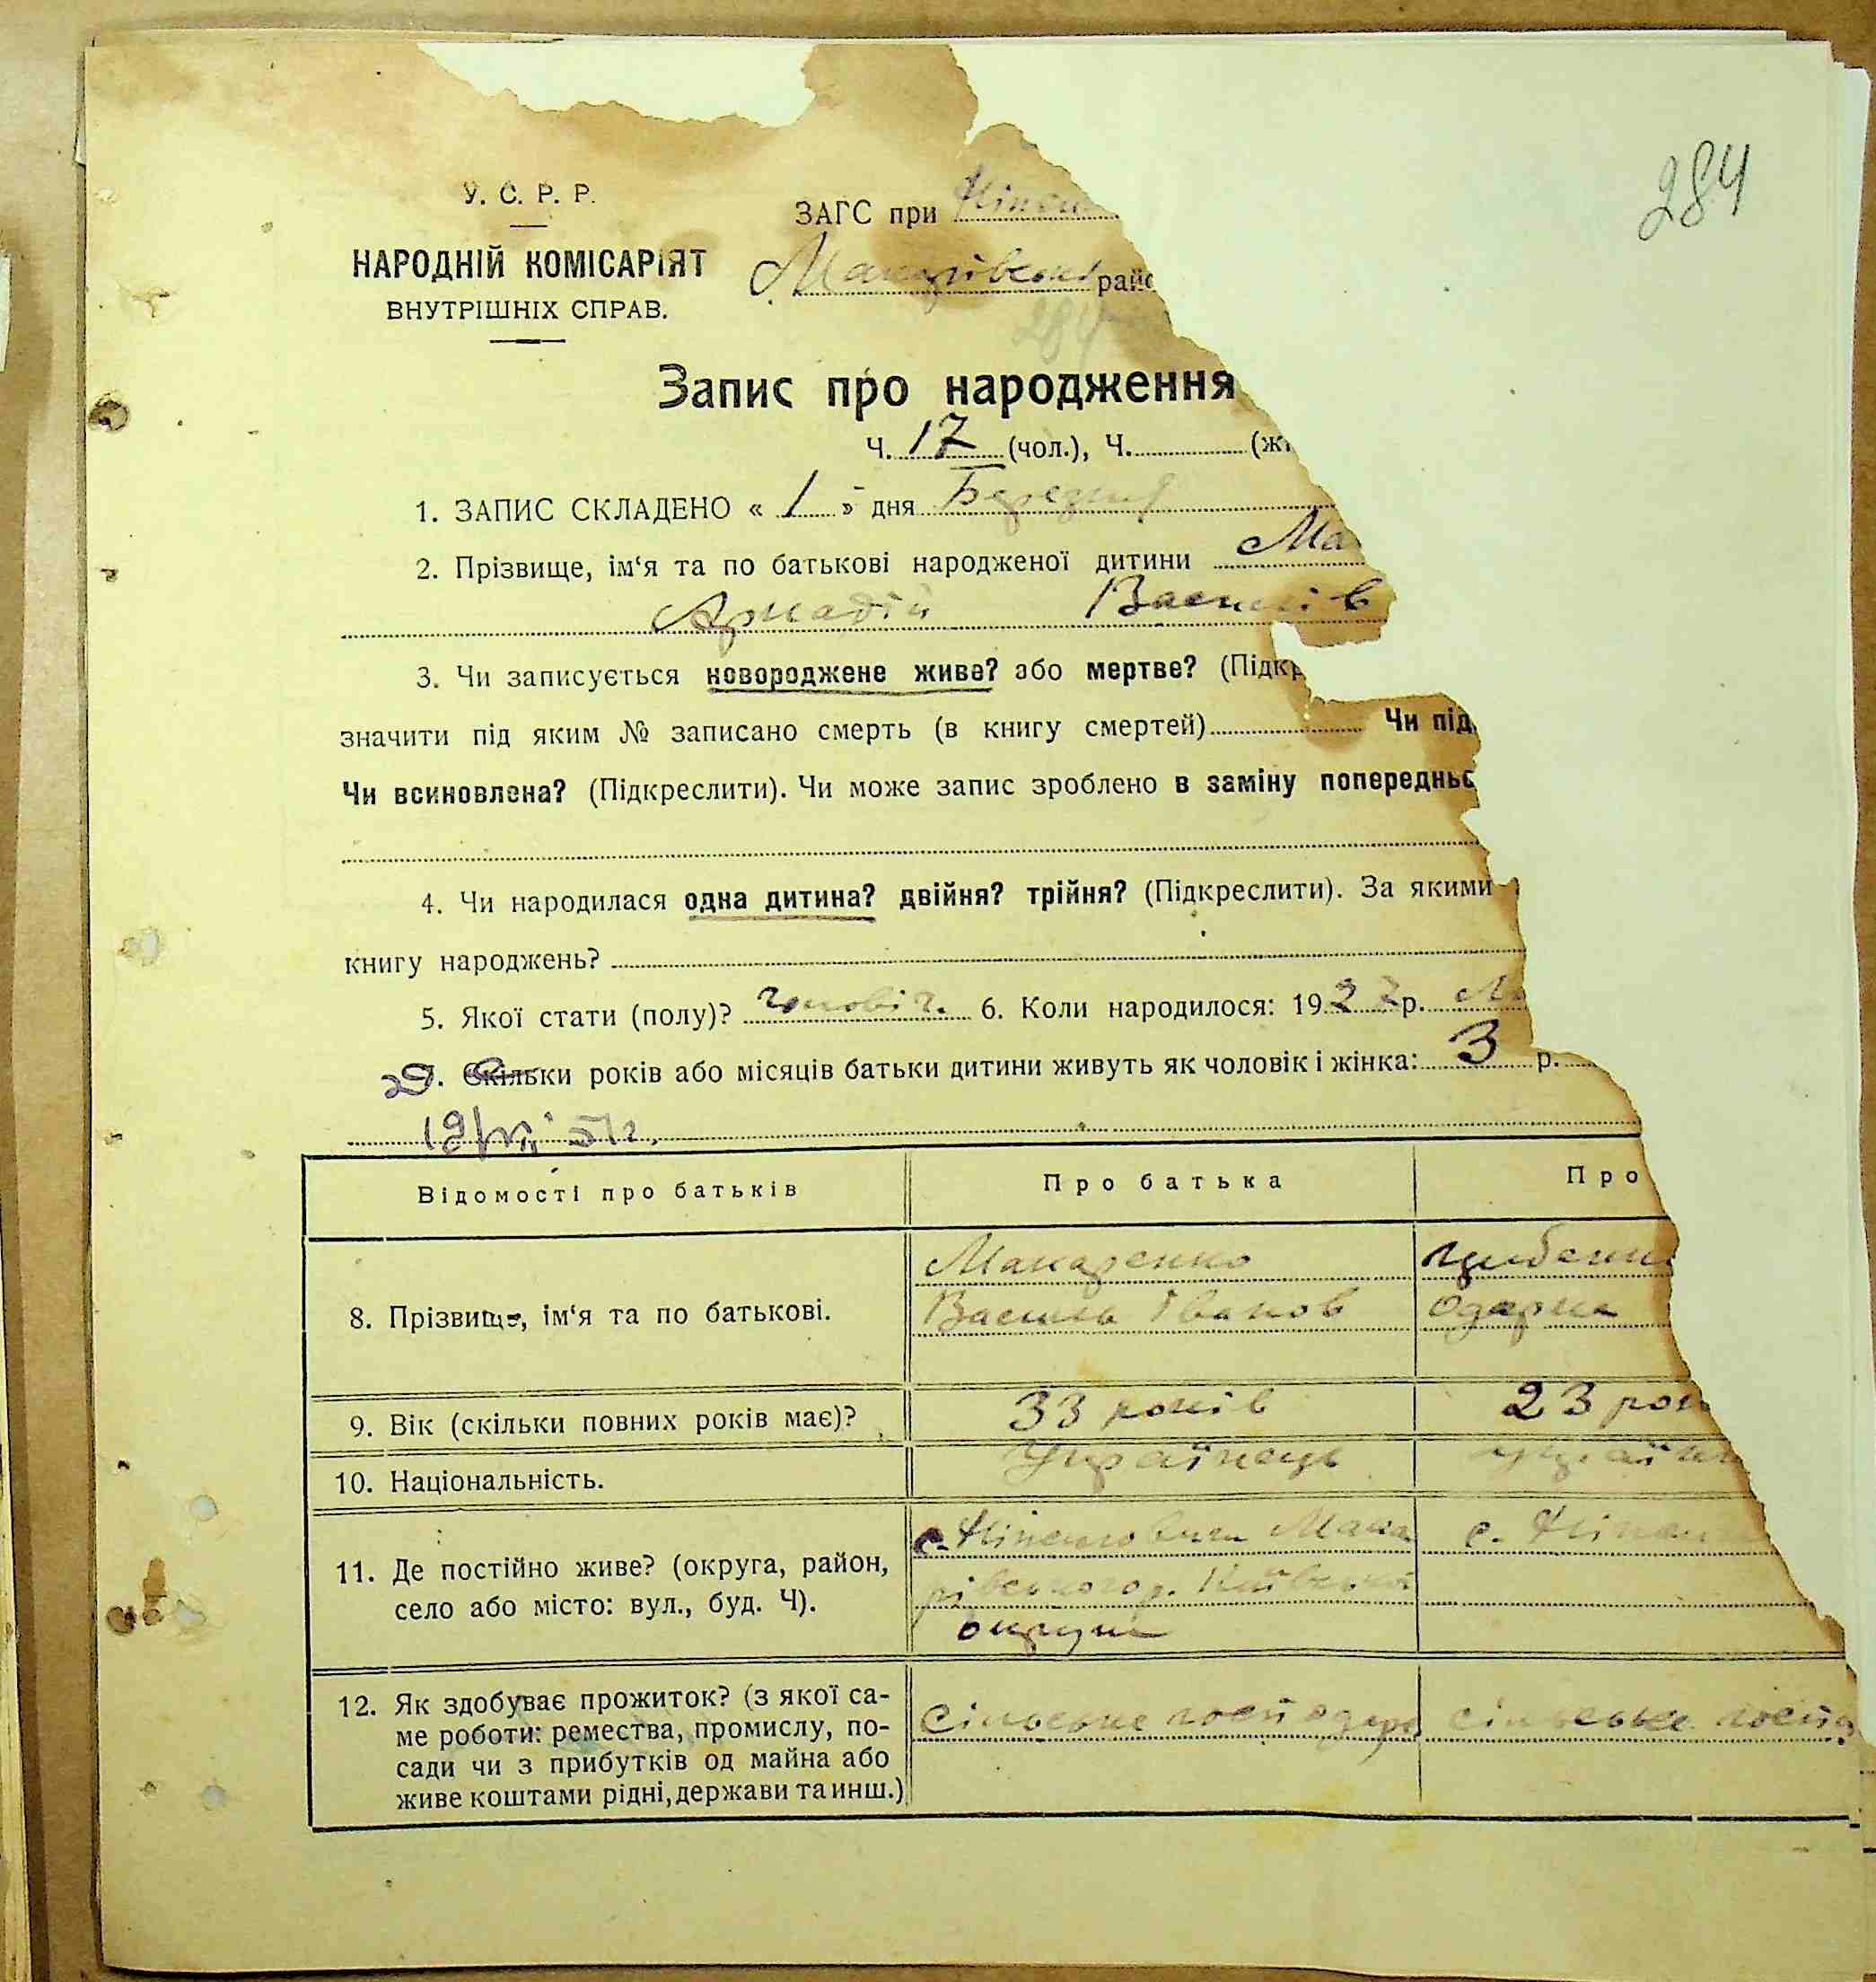 284
У. С. Р. Р.
НАРОДНІЙ КОМІСАРІЯТ
ВНУТРІШНІХ СПРАВ.
ЗАГС при
Макарівськ райо
284
Запис про народження
Ч. 17 (чол.), Ч. (жі
1. ЗАПИС СКЛАДЕНО « 1 » дня Березня
2. Прізвище, ім‘я та по батькові народженої дитини Ма
Аркадій Василів
3. Чи записується новороджене живе? або мертве? (Підкр
значити під яким № записано смерть (в книгу смертей) Чи під
Чи всиновлена? (Підкреслити). Чи може запис зроблено в заміну попередньо
4. Чи народилася одна дитина? двійня? трійня? (Підкреслити). За якими
книгу народжень?
5. Якої стати (полу)? чоловіч. 6. Коли народилося: 1927 р.
7. Скільки років або місяців батьки дитини живуть як чоловік і жінка: 3 р.
Відомості про батьків Про батька Про
8. Прізвище, ім‘я та по батькові.
Макаренко
Василь Іванов
Одарка
9. Вік (скільки повних років має)? 33 років 23 рок
10. Національність. Українець Україн
11. Де постійно живе? (округа, район,
село або місто: вул., буд. Ч).
Мака
рівського р. Київської
округи
12. Як здобуває прожиток? (з якої са-
ме роботи: ремества, промислу, по-
сади чи з прибутків од майна або
живе коштами рідні, держави та инш.)
Сільське господар сільське госпо